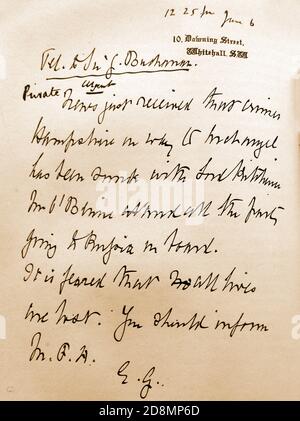 12 25 pm June 6
10, Downing Street,
Whitehall, S.W.
Tel. to Sir G. Buchanan.
Private & Urgent
News just received that cruiser
Hampshire on way to Archangel
has been sunk with Lord Kitchener
Mr O'Beirne and all the party
going to Russia on board.
It is feared that all lives
are lost. You should inform
M.F.A.
E.G.
alamy
Image ID: 2D8MP6D
www.alamy.com